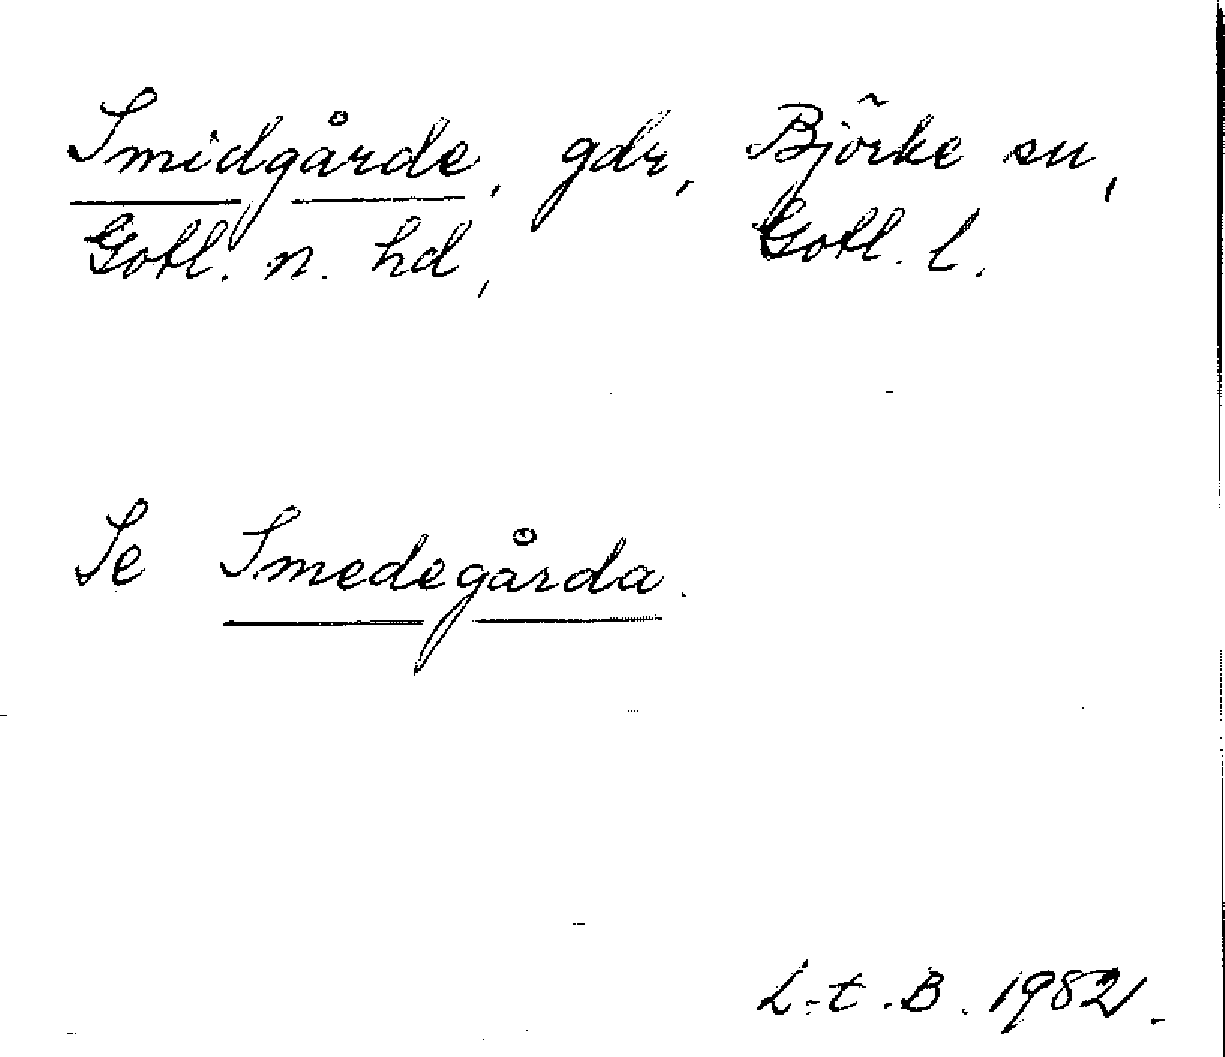 Smidgårde, gdr, Björke sn,
Gotl. n. hd, Gotl. l.
Se Smedegårda.
L.t.B. 1982.